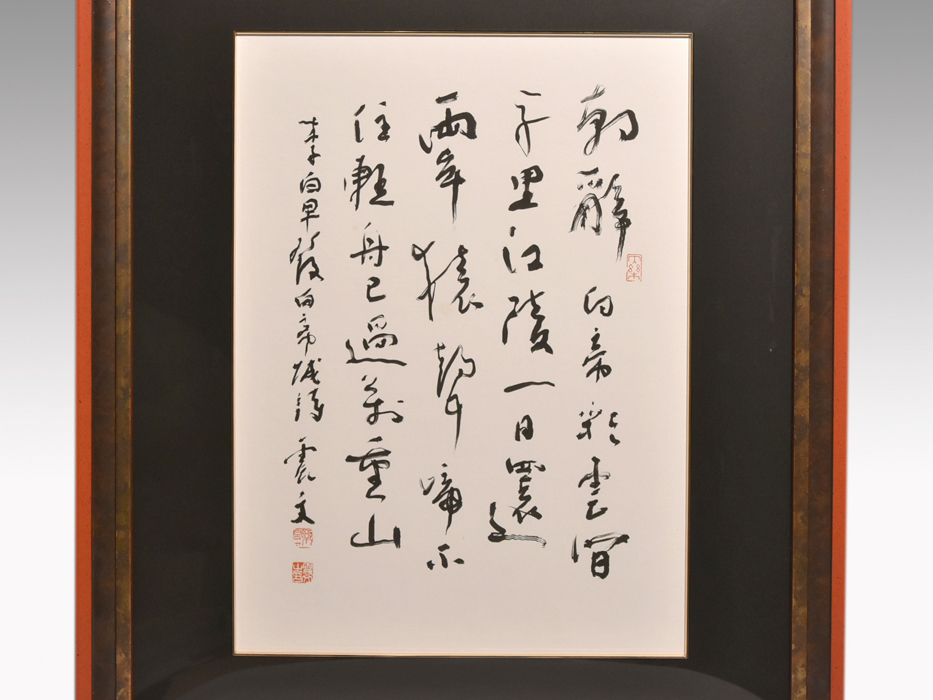 朝辭白帝彩雲間
千里江陵一日還
兩岸猿聲啼不
住輕舟已過萬重山
李白早發白帝城詩 震文